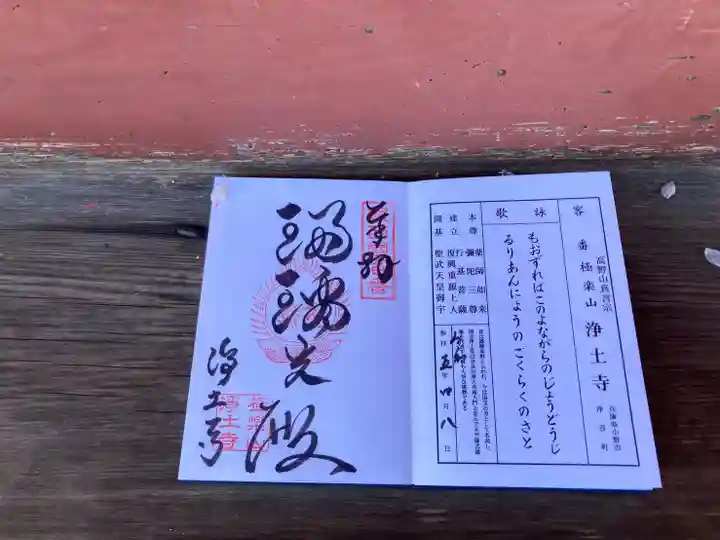 高野山真言宗
客番 極楽山 浄土寺
兵庫県小野市
浄谷町
詠歌
もおずればこのよながらのじょうどうじ
るりあんにょうのごくらくのさと
本尊 薬師如来
彌陀三尊
建立 行基菩薩
復興重源上人
開基 聖武天皇御宇
参拝 五年四月八日
奉拝
瑠璃光殿
浄土寺
極楽山
浄土寺